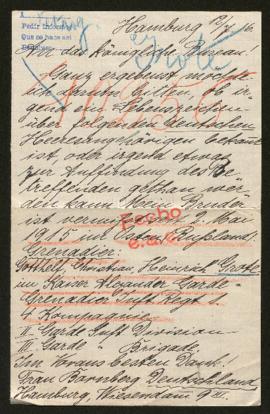 Pedir informes
Hamburg
An das königliche Bureau!
Ganz ergebenst möchte
ich darum bitten, ob ir-
gend ein Lebenszeichen
über folgenden deutschen
Heeresangehörigen bekannt
ist, oder irgend etwas
zur Auffindung des Be-
treffenden gethan wer-
den kann. Mein Bruder
ist vermisst seit 2. Mai
1915 im Osten, Rußland:
Fecho
Grenadier:
Gotthelf, Christian Heinrich Grote
im Kaiser Alexander Garde-
Grenadier Inft. Regt. 1.
4. Kompagnie
II. Garde Inft. Division
Garde Brigade
Im Voraus besten Dank!
Frau Barnberg Deutschland
Hamburg, Wiesendam